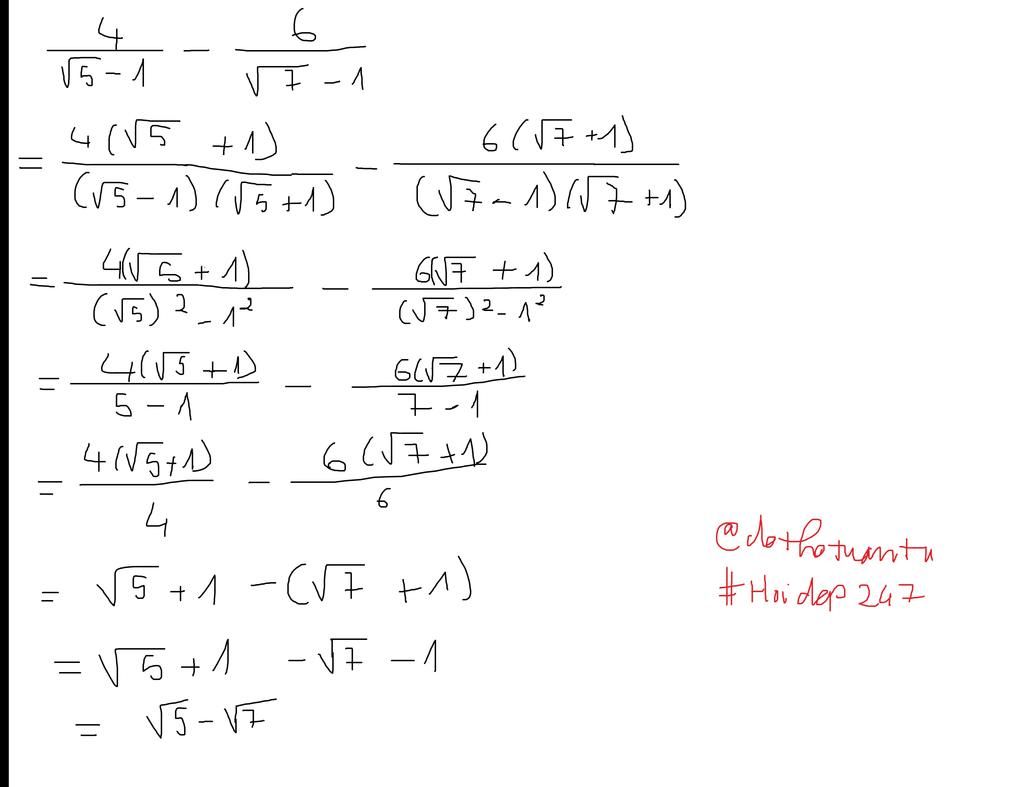 4/(√5 - 1) - 6/(√7 - 1)
= 4(√5 + 1)/((√5 - 1)(√5 + 1)) - 6(√7 + 1)/((√7 - 1)(√7 + 1))
= 4(√5 + 1)/((√5)² - 1²) - 6(√7 + 1)/((√7)² - 1²)
= 4(√5 + 1)/(5 - 1) - 6(√7 + 1)/(7 - 1)
= 4(√5 + 1)/4 - 6(√7 + 1)/6
= √5 + 1 - (√7 + 1)
= √5 + 1 - √7 - 1
= √5 - √7
@dothotuantu
#Hoidap247